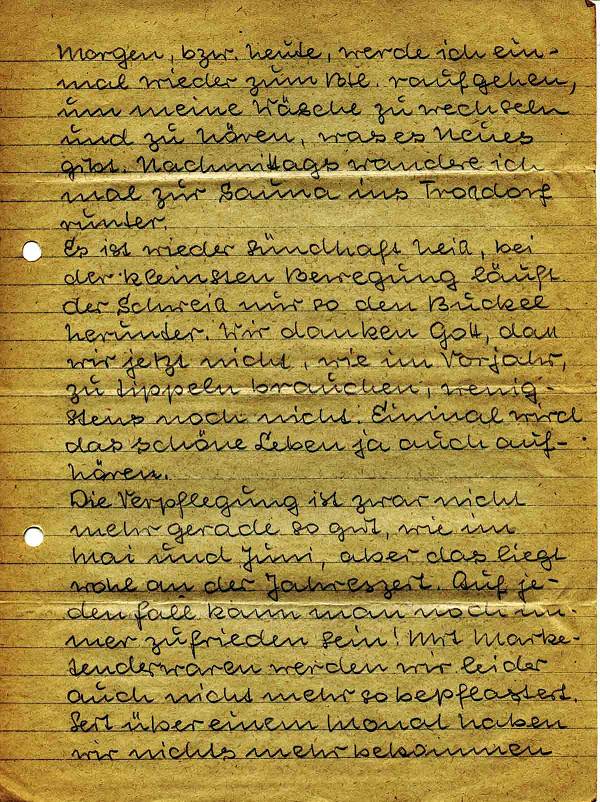 Morgen, bzw. heute, werde ich ein-
mal wieder zum Btl. raufgehen,
um meine Wäsche zu wechseln
und zu hören, was es Neues
gibt. Nachmittags wandere ich
mal zur Sauna ins Troßdorf
runter.
Es ist wieder sündhaft heiß, bei
der kleinsten Bewegung läuft
der Schweiß nur so den Buckel
herunter. Wir danken Gott, daß
wir jetzt nicht, wie im Vorjahr,
zu tippeln brauchen, wenig-
stens noch nicht. Einmal wird
das schöne Leben ja auch auf-
hören.
Die Verpflegung ist zwar nicht
mehr gerade so gut, wie im
Mai und Juni, aber das liegt
wohl an der Jahreszeit. Auf je-
den fall kann man noch im-
mer zufrieden sein! Mit Marke-
tenderwaren werden wir leider
auch nicht mehr so bepflastert.
Seit über einem Monat haben
wir nichts mehr bekommen